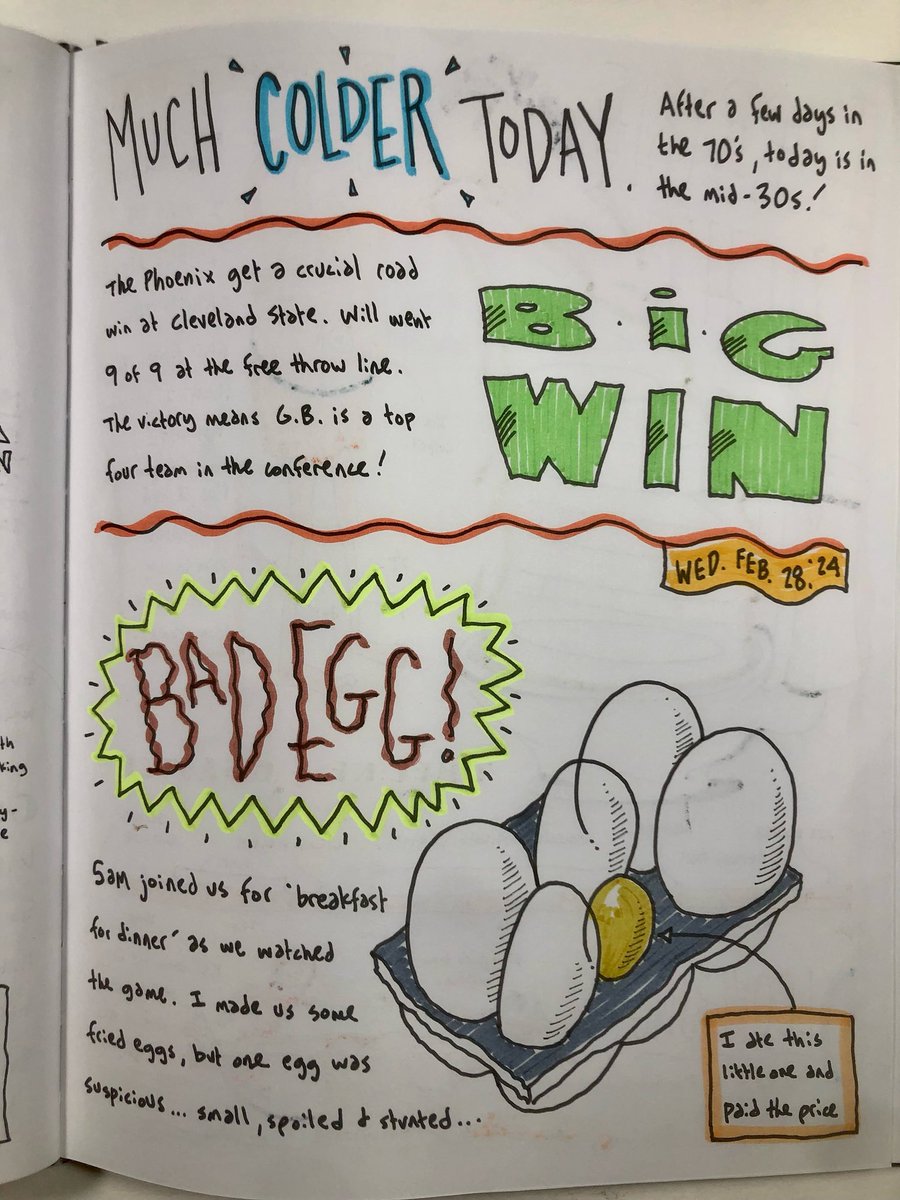 MUCH COLDER TODAY.
After a few days in
the 70's, today is in
the mid-30s!
The Phoenix get a crucial road
win at Cleveland State. Will went
9 of 9 at the free throw line.
The victory means G.B. is a top
four team in the conference!
BiG
WIN
WED. FEB. 28.'24
BAD EGG!
Sam joined us for 'breakfast
for dinner' as we watched
the game. I made us some
fried eggs, but one egg was
suspicious... small, spoiled & stunted...
I ate this
little one and
paid the price